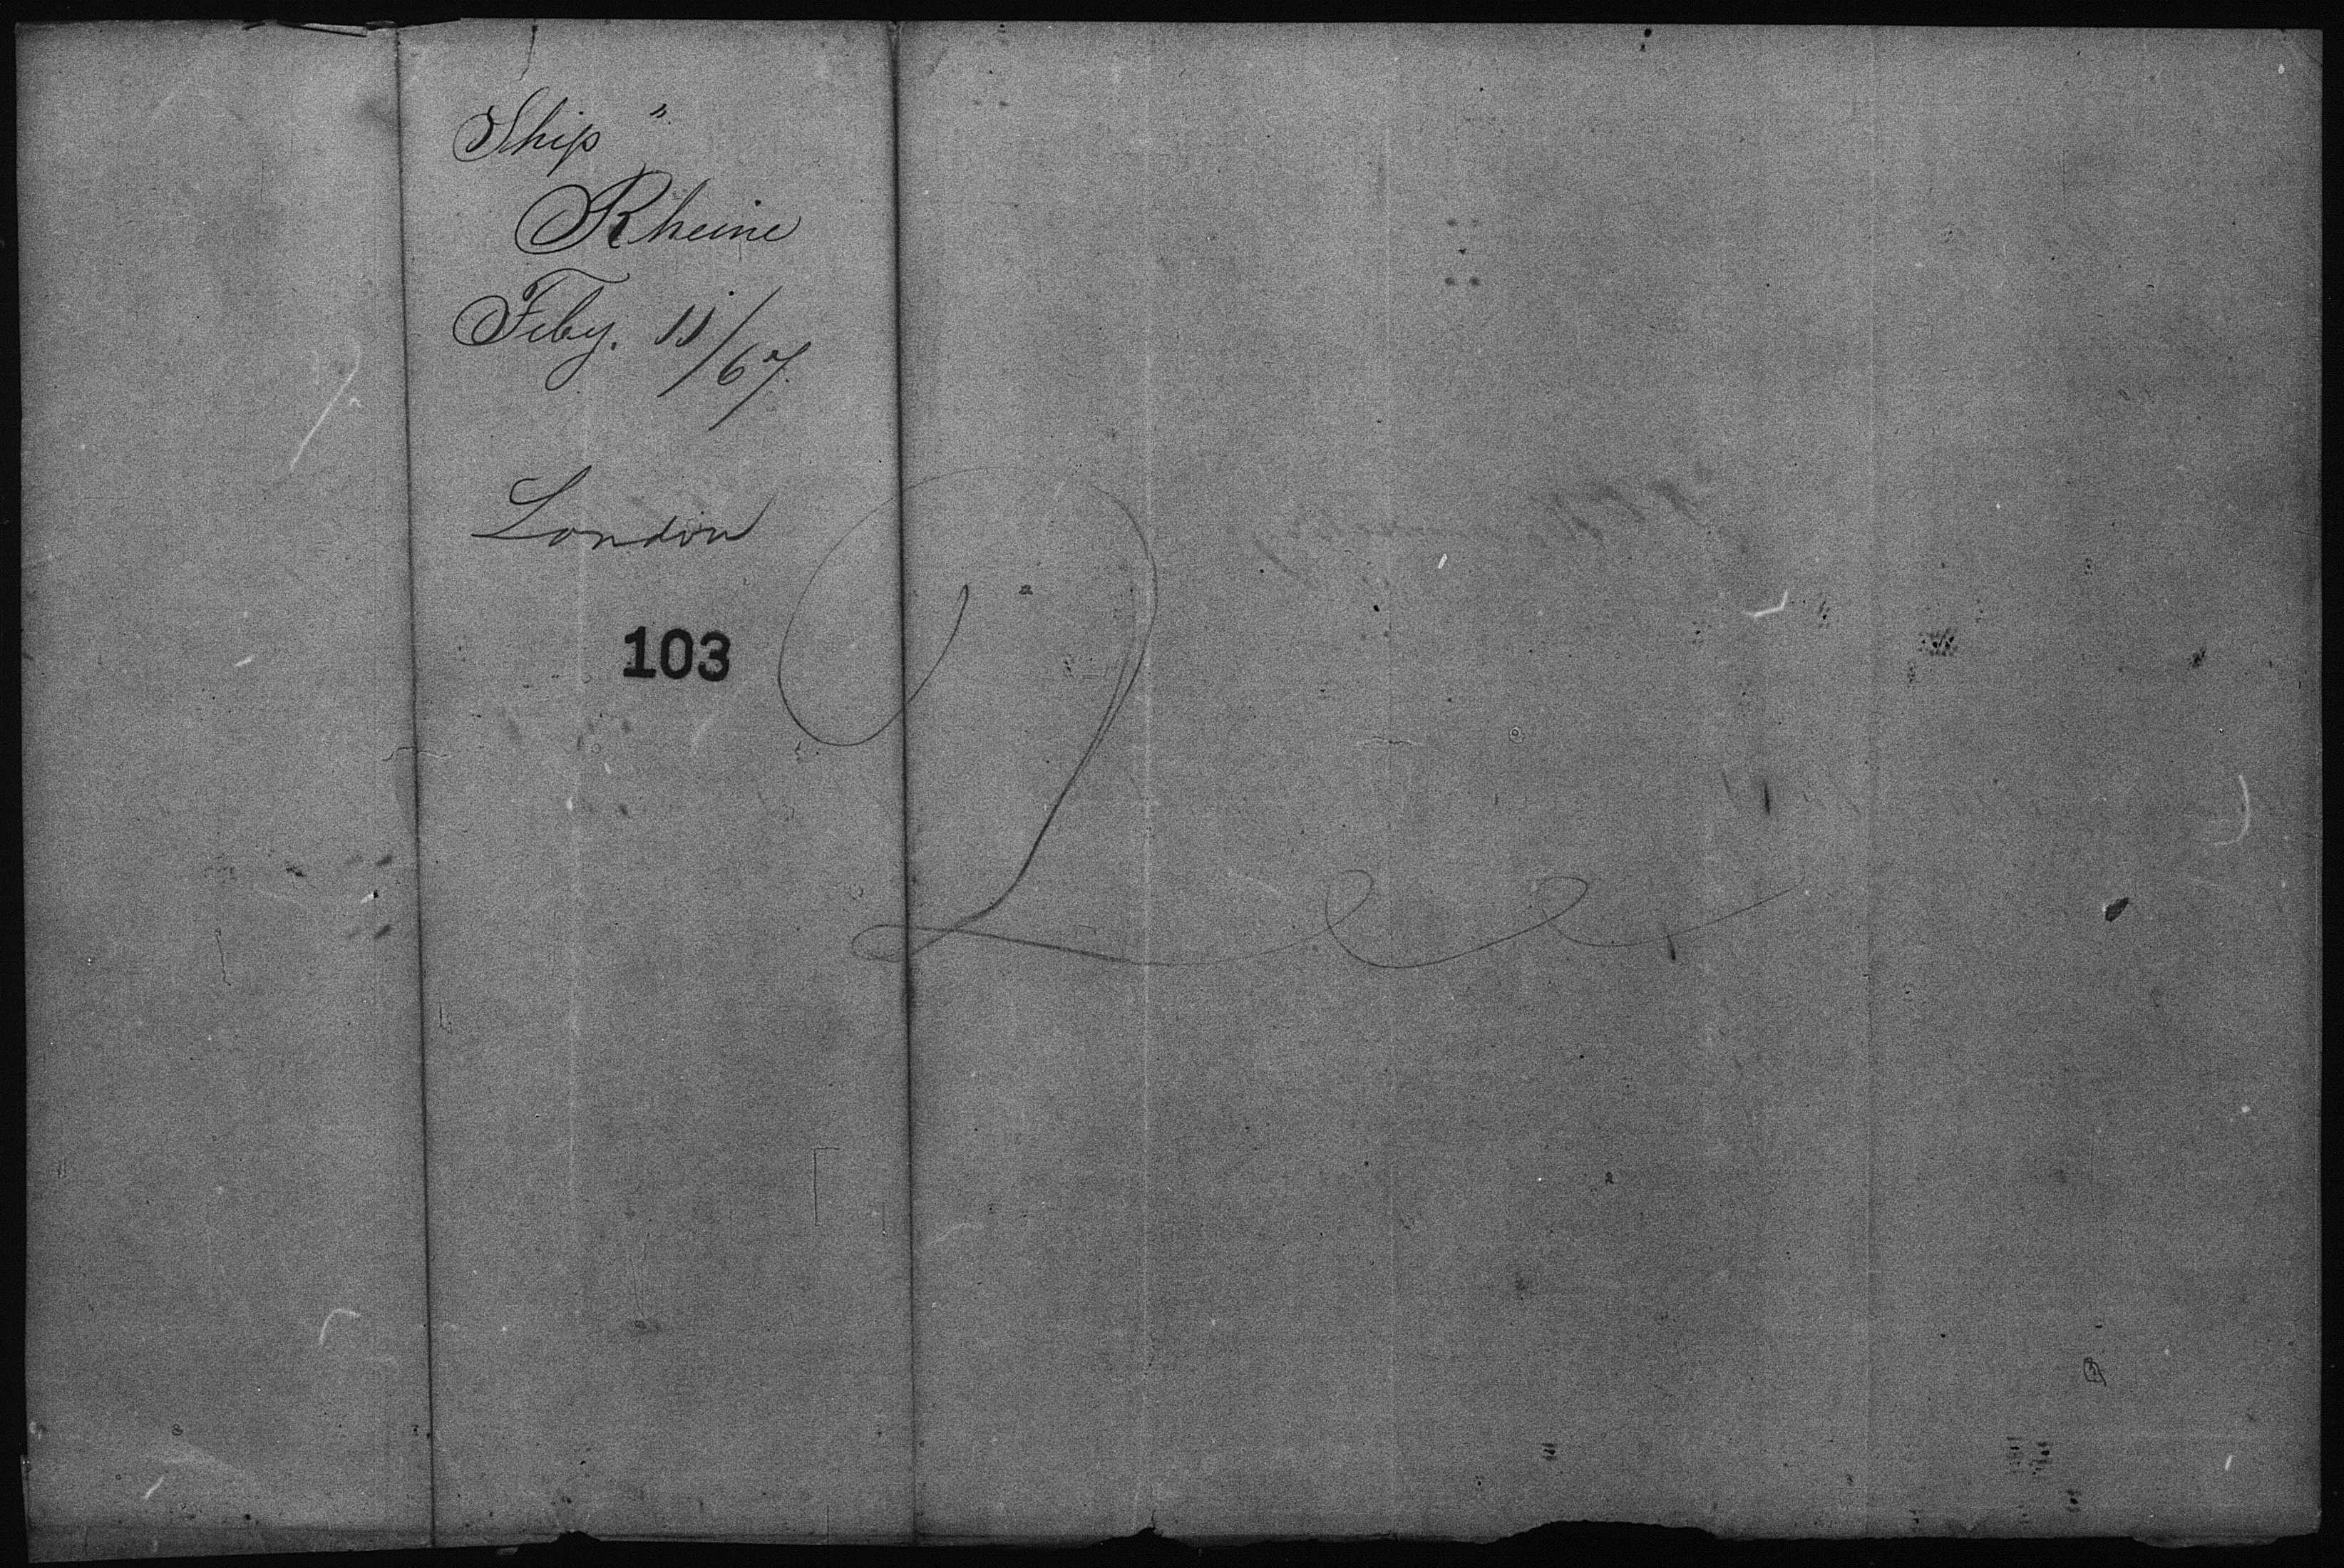 Ship "
Rheine
Feby. 11/67.
London
103